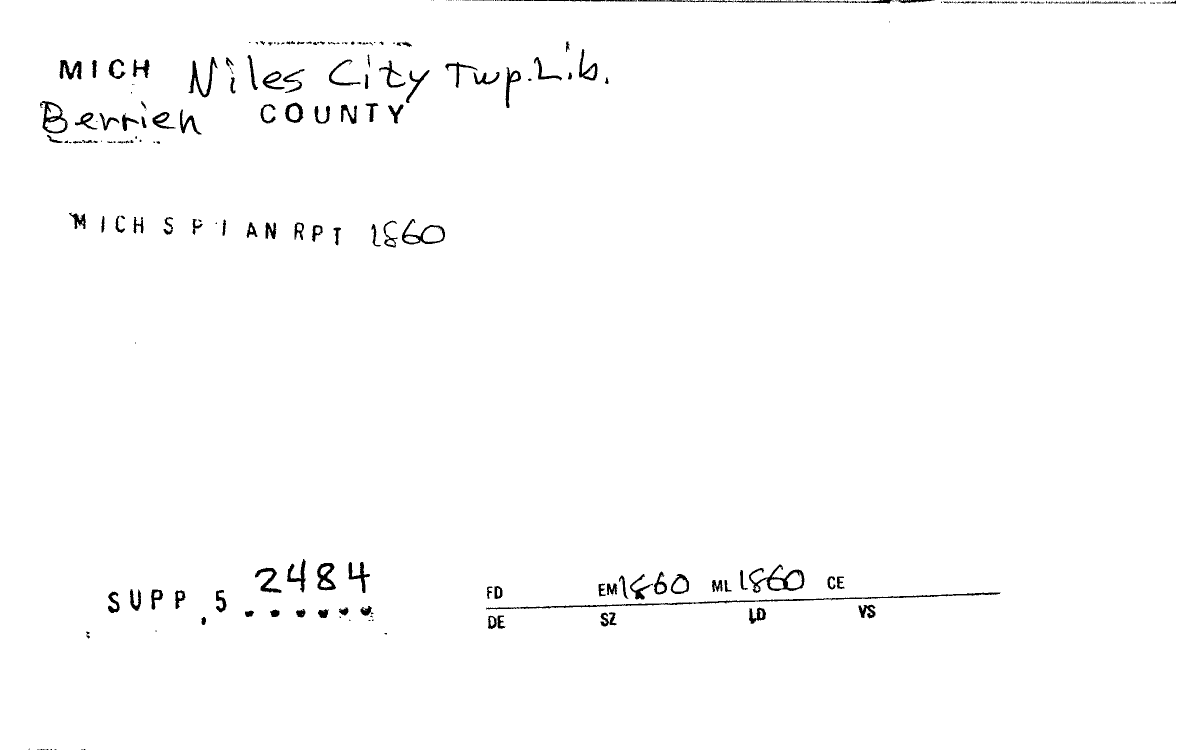 MICH Niles City Twp. Lib.
Berrien COUNTY
MICH S P I AN RPT 1860
SUPP. 5 2484
FD EM 1860 ML 1860 CE
DE SZ LD VS